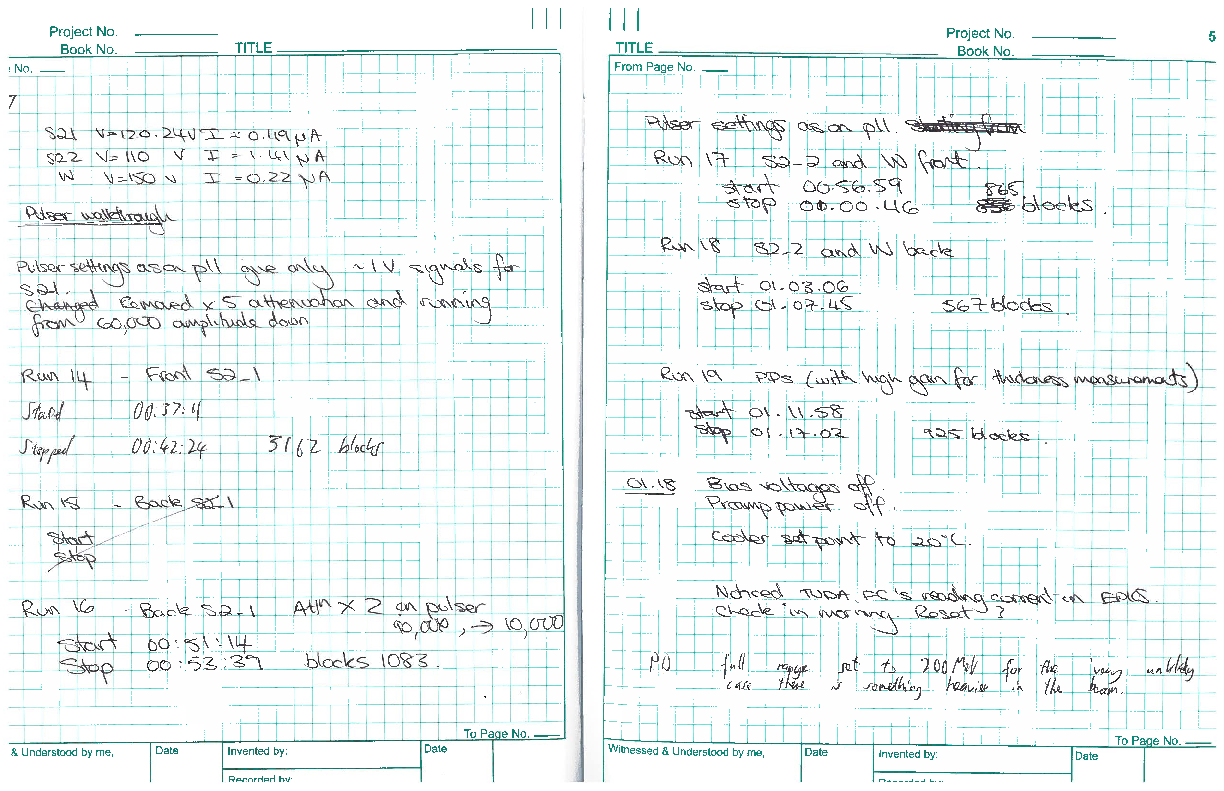 Project No.
Book No.
TITLE
No.
7
S21 V=120.24V I = 0.119 μA
S22 V=110 V I = 1.41 μA
W V=150 V I = 0.22 μA
Pulser walkthrough
Pulser settings as on p11 give only ~1V signals for
S21.
Changed Removed x 5 attenuation and running
from 60,000 amplitude down
Run 14 - Front S2_1
Start 00:37:4
Stopped 00:42:24 3162 blocks
Run 15 - Back S2_1
Start
Stop
Run 16 - Back S2_1 Attn x 2 on pulser
90,000, → 10,000
Start 00:51:14
Stop 00:53:39 blocks 1083.
To Page No.
& Understood by me,
Date
Invented by:
Date
Recorded by:
Project No.
Book No.
5
TITLE
From Page No.
Pulser settings as on p11 starting from
Run 17 S2-2 and W front.
start 00:56.59 865
stop 00.00.46 blocks.
Run 18 S2.2 and W back
start 01.03.06
stop 01.07.45 567 blocks.
Run 19 PDs (with high gain for thickness measurements)
start 01.11.58
stop 01.17.02 925 blocks.
01.18 Bias voltages off.
Preamp power off.
Cooler set point to 20°C.
Noticed TUDA FC is reading current in EPICS.
Check in morning. Reset?
PD full range set to 200 MeV for the very unlikely
case there is something heavier in the beam.
To Page No.
Witnessed & Understood by me,
Date
Invented by:
Date
Recorded by: